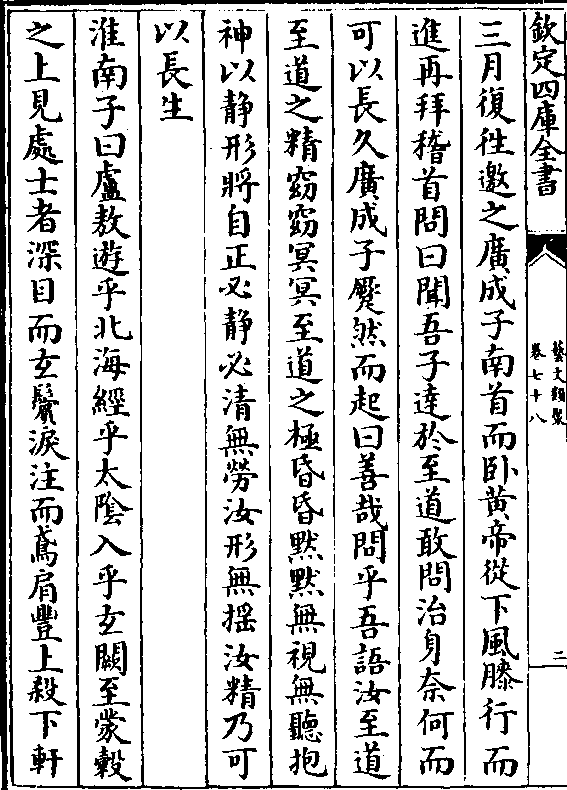 欽定四庫全書
藝文類聚
卷七十八
二
三月復往邀之廣成子南首而卧黄帝從下風膝行而
進再拜稽首問曰聞吾子達於至道敢問治身奈何而
可以長久廣成子蹷然而起曰善哉問乎吾語汝至道
至道之精窈窈冥冥至道之極昏昏黙黙無視無聽抱
神以静形將自正必静必清無勞汝形無揺汝精乃可
以長生
淮南子曰盧敖遊乎北海經乎太陰入乎玄闕至蒙轂
之上見處士者深目而玄鬢淚注而鳶肩豐上殺下軒